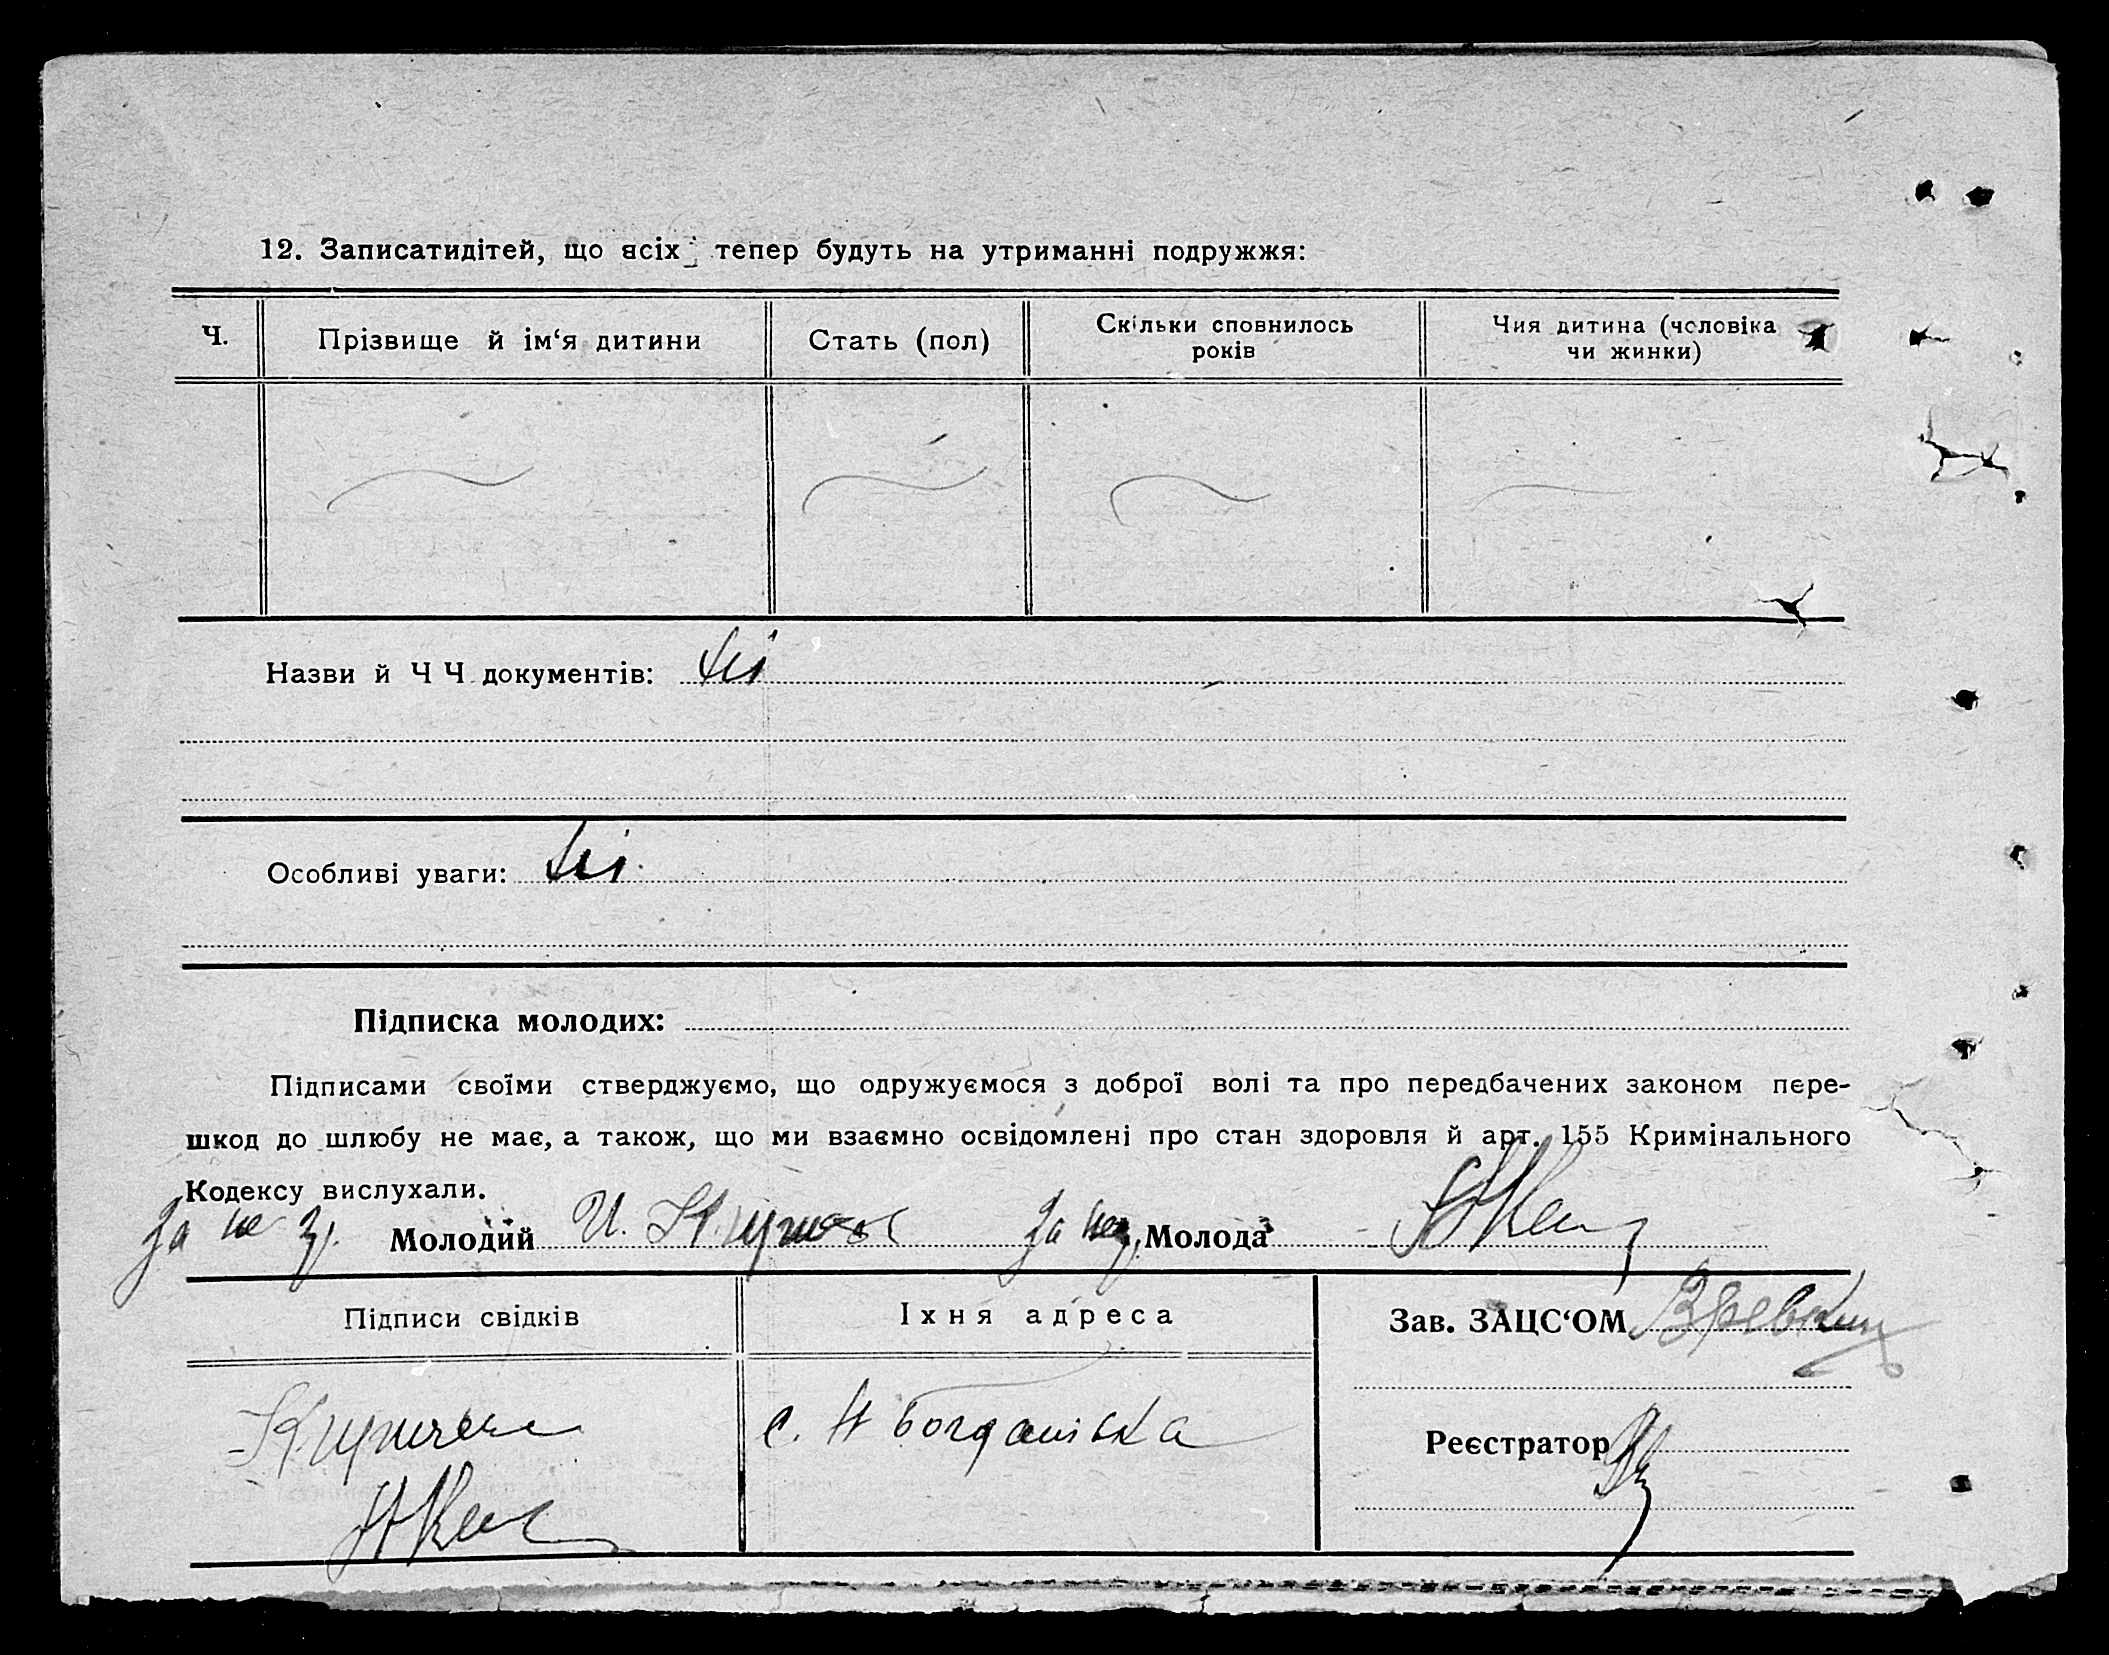 12. Записатидітей, що всіх тепер будуть на утриманні подружжя:
Ч.
Прізвище й ім‘я дитини
Стать (пол)
Скільки сповнилось
років
Чия дитина (чоловіка
чи жинки)
Назви й Ч Ч документів: Ні
Особливі уваги: Ні
Підписка молодих:
Підписами своїми стверджуємо, що одружуємося з доброї волі та про передбачених законом пере-
шкод до шлюбу не має, а також, що ми взаємно освідомлені про стан здоровля й арт. 155 Кримінального
Кодексу вислухали.
За не Молодий И. За Молода
Підписи свідків
Іхня адреса
Зав. ЗАЦС‘ОМ
с. Н Богданівка
Реєстратор